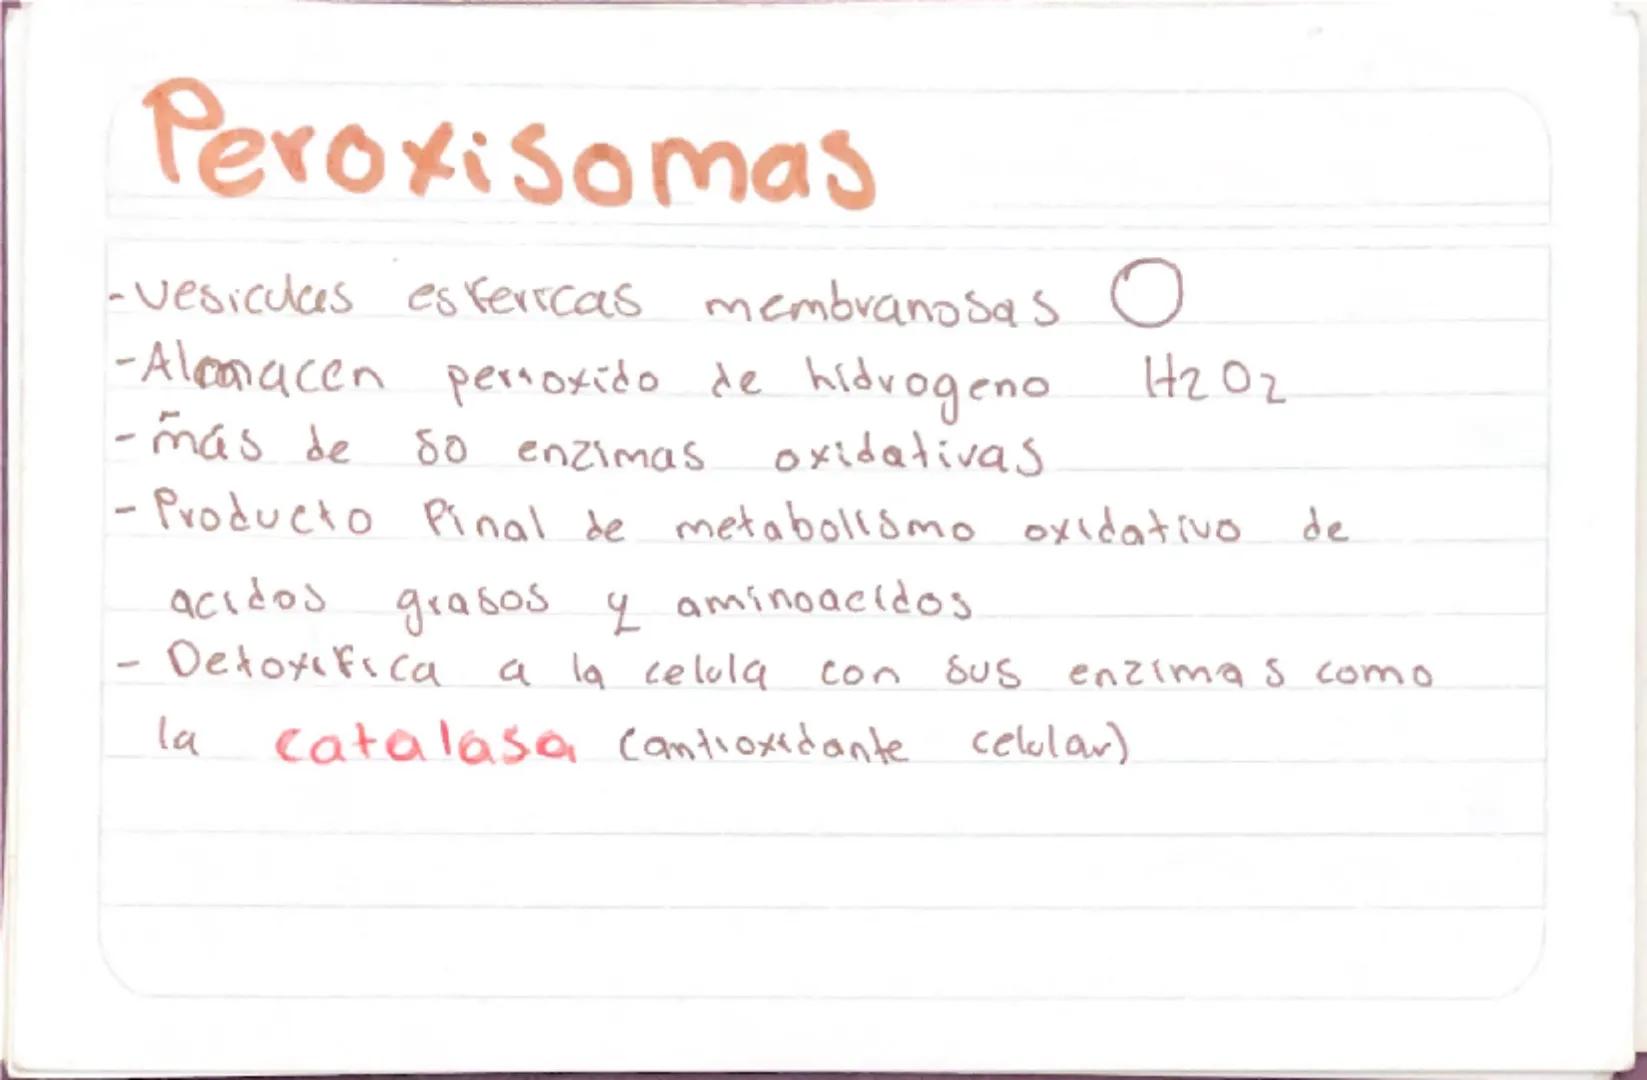 Peroxisomas
- vesiculas esfericas membranosas
- Almacen peroxido de hidrogeno H2O2
- más de 50 enzimas oxidativas
- Producto final de metabolismo oxidativo de
acidos grasos y aminoacidos
- Detoxifica a la celula con sus enzimas como
la catalasa (antioxidante celular)